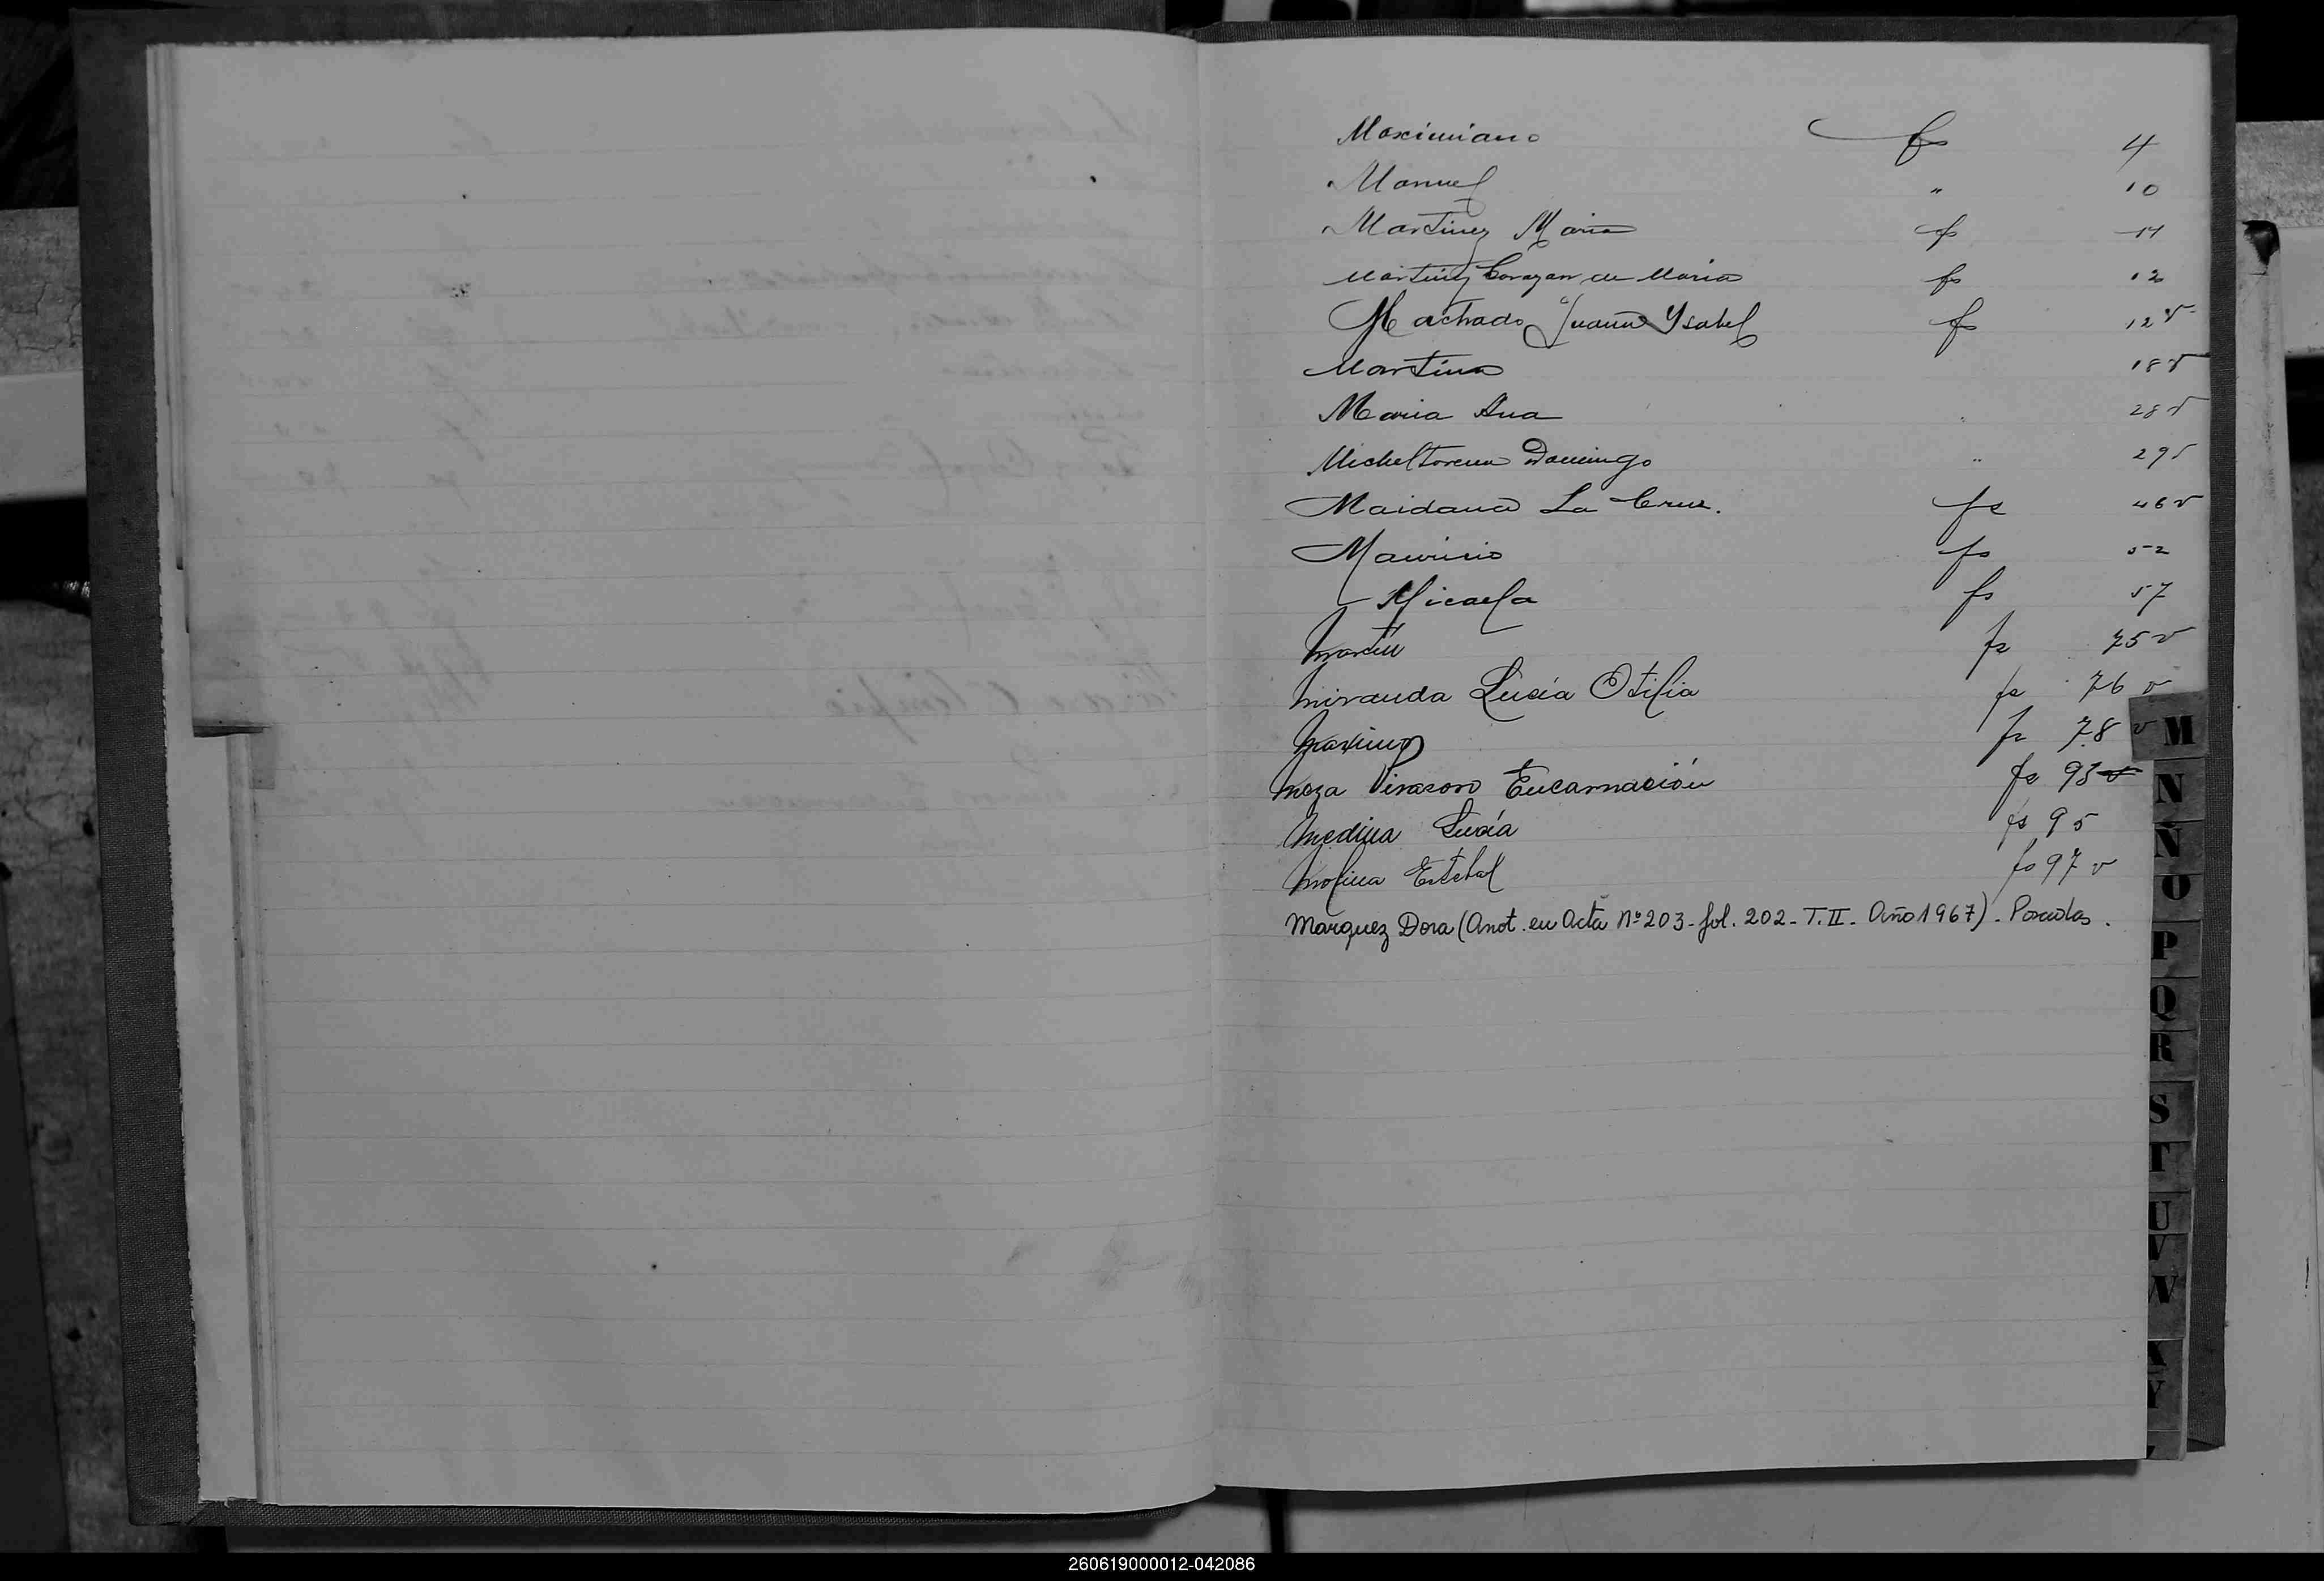 Maximiano fs 4
Manuel " 10
Martinez Maria fs 11
Martinez Corazon de Maria fs 12
Machado Juana Ysabel fs 12 v
Martina 18 v
Maria Ana 28 v
Micheltorena Domingo " 29 v
Maidana La Cruz. fs 46 v
Mauricio fs 52
Micaela fs 57
Martin fs 75 v
Miranda Lucía Otilia fs 76 v
Maximo fs 78 v
Meza Virasoro Encarnación fs 93
Medina Lucía fs 95
Molina fs 97 v
Marquez Dora (Anot. en Acta Nº 203 - fol. 202 - T. II - Año 1967) - Posadas.
M
N
Ñ
O
P
Q
R
S
T
U
V
W
X
Y
260619000012-042086